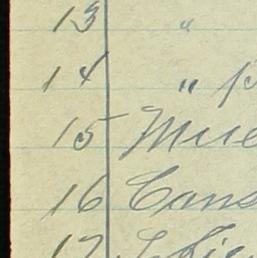 13 "
14 " p
15 Mue
16 Cans
17